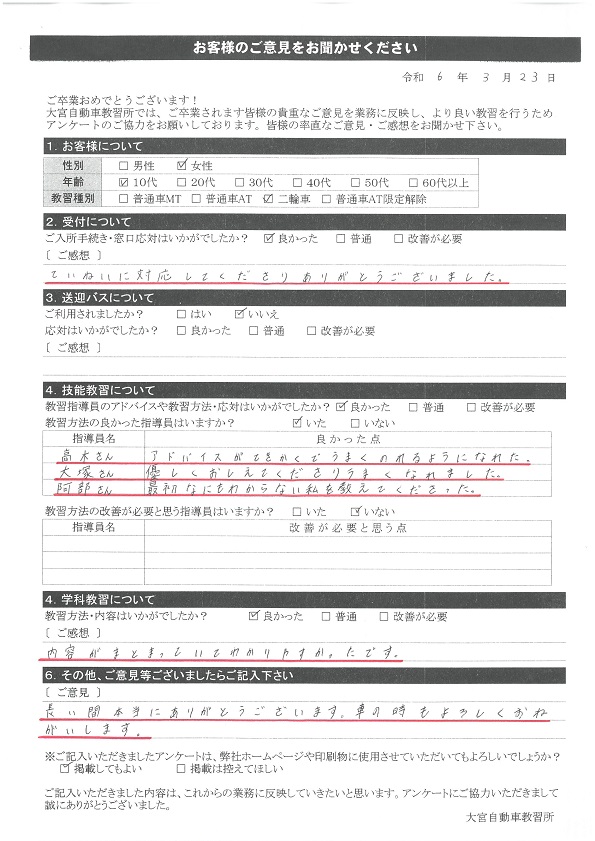 お客様のご意見をお聞かせください
令和 6 年 3 月 23 日
ご卒業おめでとうございます！
大宮自動車教習所では、ご卒業されます皆様の貴重なご意見を業務に反映し、より良い教習を行うため
アンケートのご協力をお願いしております。皆様の率直なご意見・ご感想をお聞かせ下さい。
1. お客様について
性別 □ 男性 ☑ 女性
年齢 ☑ 10代 □ 20代 □ 30代 □ 40代 □ 50代 □ 60代以上
教習種別 □ 普通車MT □ 普通車AT ☑ 二輪車 □ 普通車AT限定解除
2. 受付について
ご入所手続き・窓口応対はいかがでしたか？ ☑ 良かった □ 普通 □ 改善が必要
〔 ご感想 〕
ていねいに対応してくださりありがとうございました。
3. 送迎バスについて
ご利用されましたか？ □ はい ☑ いいえ
応対はいかがでしたか？ □ 良かった □ 普通 □ 改善が必要
〔 ご感想 〕
4. 技能教習について
教習指導員のアドバイスや教習方法・応対はいかがでしたか？ ☑ 良かった □ 普通 □ 改善が必要
教習方法の良かった指導員はいますか？ ☑ いた □ いない
指導員名 良かった点
高木さん アドバイスがてきかくでうまくのれるようになれた。
大塚さん 優しくおしえてくださりうまくなれました。
阿部さん 最初なにもわからない私を教えてくださった。
教習方法の改善が必要と思う指導員はいますか？ □ いた ☑ いない
指導員名 改善が必要と思う点
4. 学科教習について
教習方法・内容はいかがでしたか？ ☑ 良かった □ 普通 □ 改善が必要
〔 ご感想 〕
内容がまとまっていてわかりやすかったです。
6. その他、ご意見等ございましたらご記入下さい
〔 ご意見 〕
長い間本当にありがとうございます。車の時もよろしくおね
がいします。
※ご記入いただきましたアンケートは、弊社ホームページや印刷物に使用させていただいてもよろしいでしょうか？
☑ 掲載してもよい □ 掲載は控えてほしい
ご記入いただきました内容は、これからの業務に反映していきたいと思います。アンケートにご協力いただきまして
誠にありがとうございました。
大宮自動車教習所